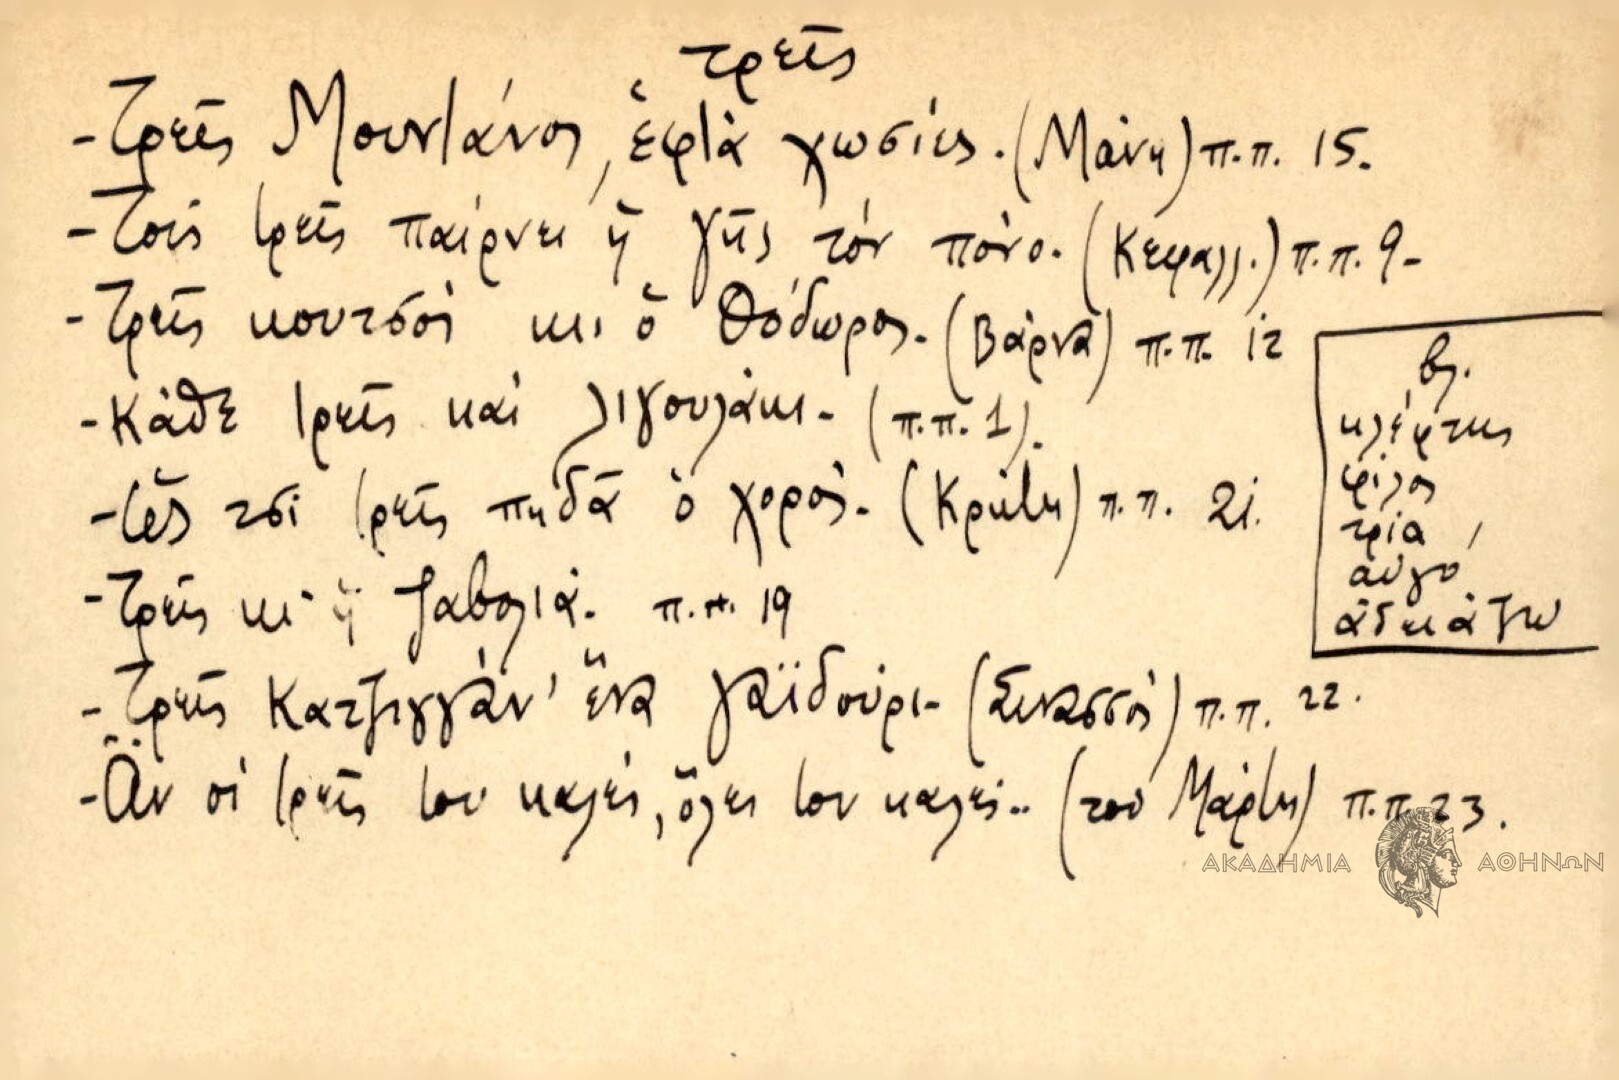 τρεῖς
-Τρεῖς Μουντάνος, ἑφτὰ χωσίες. (Μάνη) π.π. 15.
-Τοὶς τρεῖς παίρνει ἡ γῆς τὸν πόνο. (Κεφαλλ.) π.π. 9-
-Τρεῖς κουτσοὶ κι ὁ Θόδωρος. (Βάρνα) π.π. 12
-Κάθε τρεῖς καὶ λιγουλάκι. (π.π. 1).
- τσὶ τρεῖς πηδᾶ ὁ χορός. (Κρήτη) π.π. 21.
-Τρεῖς κι ἡ ζαβολιά. π.π. 19
-Τρεῖς Κατζιγγάν' ἕνα γαϊδούρι- (Σινασσός) π.π. 22.
-Ἂν οἱ τρεῖς του καλές, ὅλες του καλές.. (τοῦ Μάρτη) π.π. 23.
βλ.
κλέφτης
φίλος
τρία
αὐγό
ἀδειάζω
ΑΚΑΔΗΜΙΑ ΑΘΗΝΩΝ